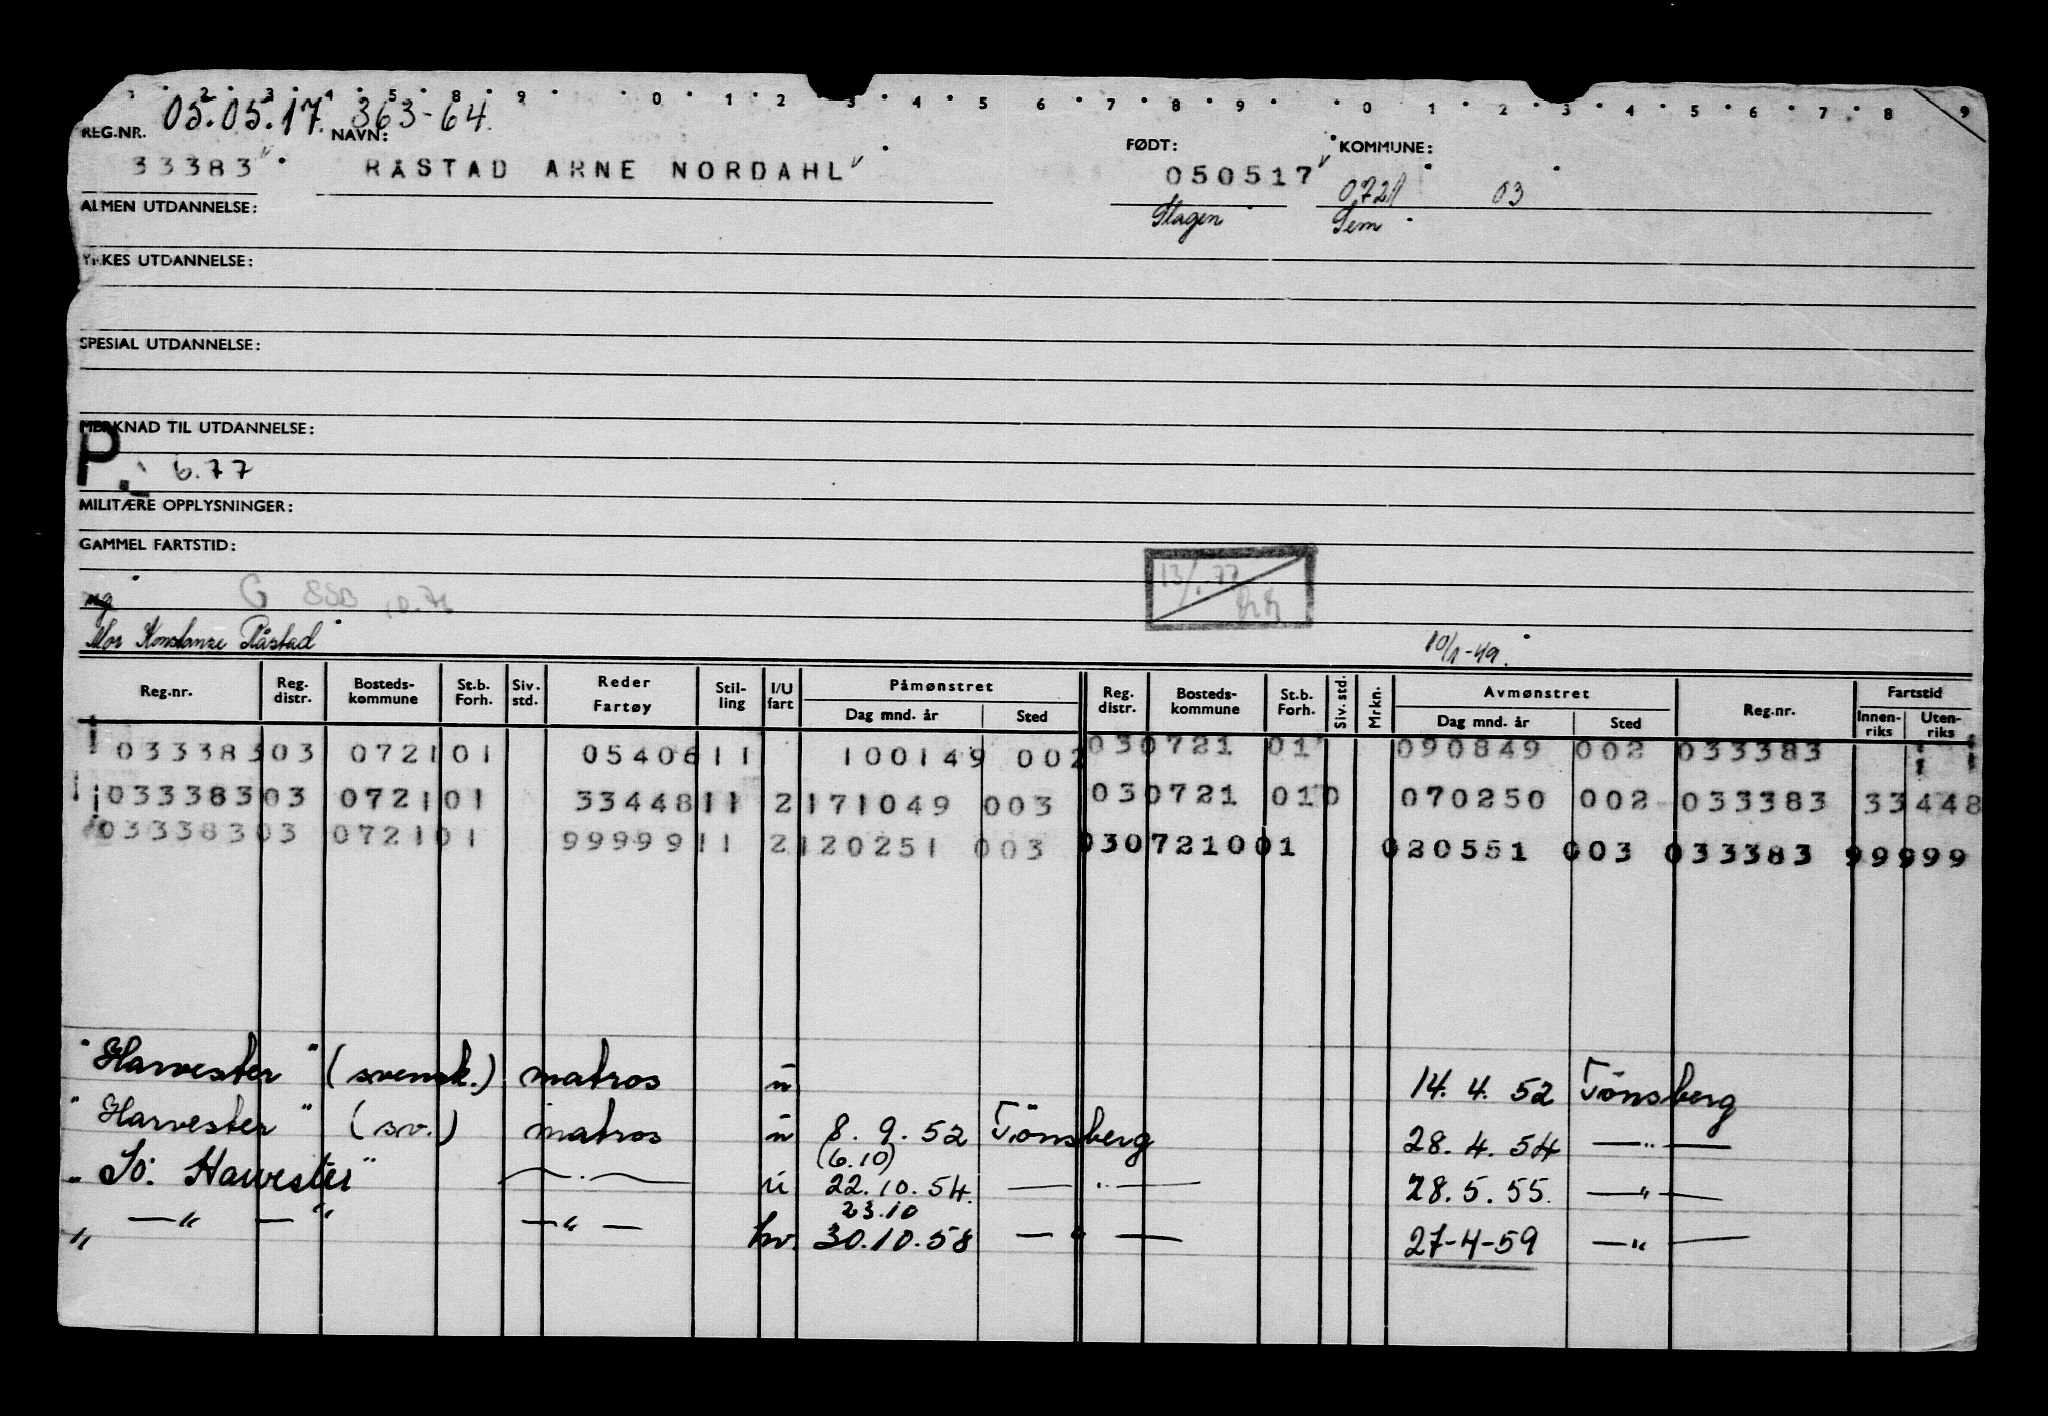 1 2 3 4 5 8 9 0 1 2 3 4 5 6 7 8 9 0 1 2 3 4 5 6 7 8 9
05.05.17. 363-64.
REG.NR. NAVN: FØDT: KOMMUNE:
33383 RÅSTAD ARNE NORDAHL 050517 0721 03
ALMEN UTDANNELSE: Slagen Sem
YRKES UTDANNELSE:
SPESIAL UTDANNELSE:
MERKNAD TIL UTDANNELSE:
P. 6.77
MILITÆRE OPPLYSNINGER:
GAMMEL FARTSTID:
ug G SSB 10.76 13/1.77
Mor Konstanse Råstad 10/1-49.
Reg.nr. Reg. distr. Bosteds- kommune St.b. Forh. Siv. std. Reder Fartøy Stil- ling I/U fart Påmønstret Dag mnd. år Sted Reg. distr. Bosteds- kommune St.b. Forh. Siv. std. Mrkn. Avmønstret Dag mnd. år Sted Reg.nr. Fartstid Innen- riks Uten- riks
033383 03 0721 01 05406 11 100149 002 03 0721 01 090849 002 033383
033383 03 0721 01 33448 11 2 171049 003 03 0721 010 070250 002 033383 33448
033383 03 0721 01 99999 11 2 120251 003 030721001 020551 003 033383 99999
"Harvester" (svensk.) matros u 14. 4. 52 Tönsberg
"Harvester" (sv.) matros u 8. 9. 52 Tönsberg 28. 4. 54 —"—
(6.10)
"Sö. Harvester" —.— u 22.10.54. —"— 28.5.55. —"—
23.10
" —"— —" —"— hv. 30.10.58 —"— 27-4-59 —"—